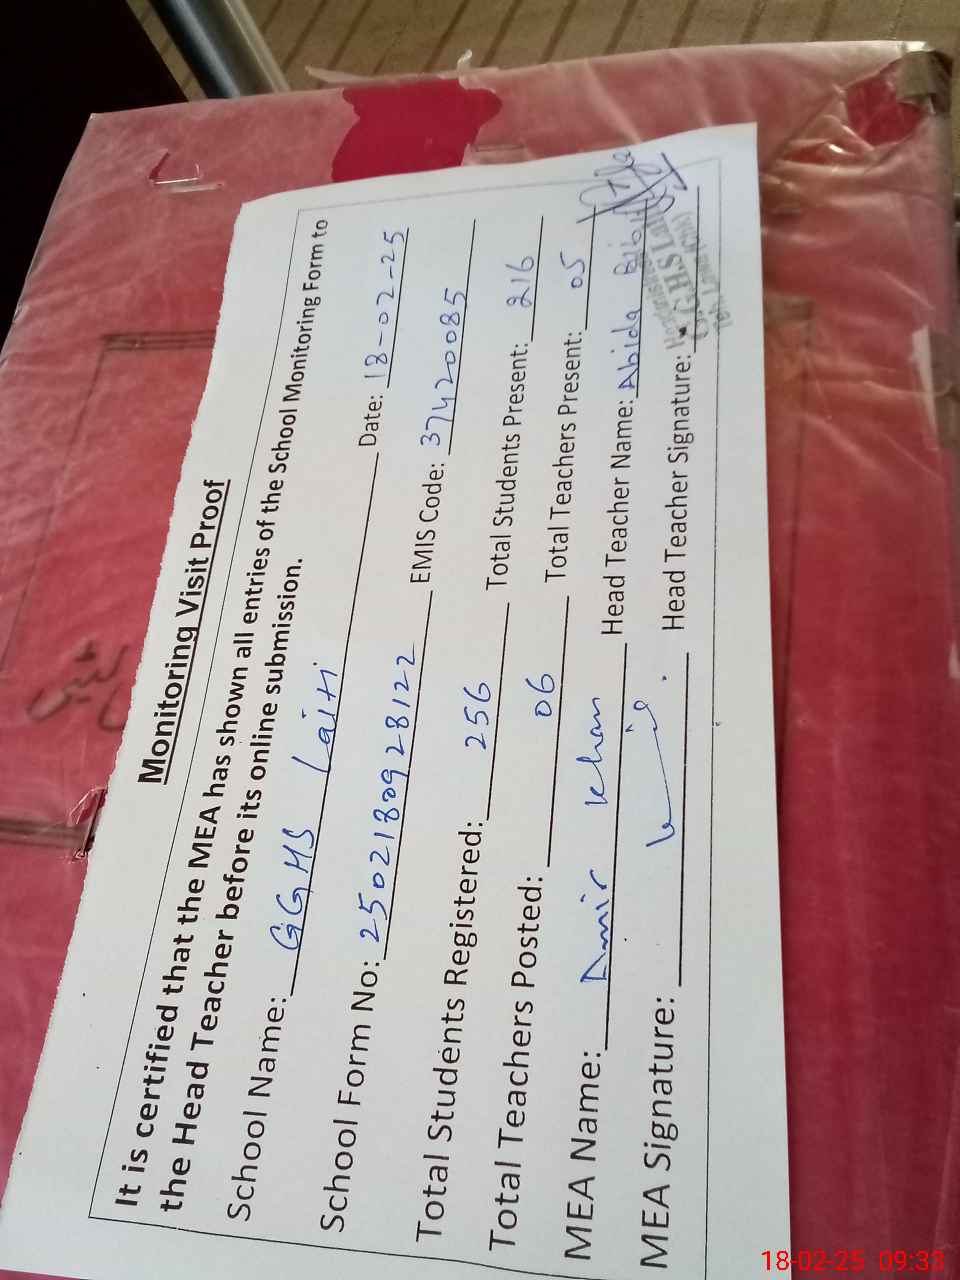 Monitoring Visit Proof
It is certified that the MEA has shown all entries of the School Monitoring Form to
the Head Teacher before its online submission.
School Name: GGHS Laiti Date: 18-02-25
School Form No: 2502180928122 EMIS Code: 37420085
Total Students Registered: 256 Total Students Present: 216
Total Teachers Posted: 06 Total Teachers Present: 05
MEA Name: Amir Khan Head Teacher Name: Abida Bibi
MEA Signature: Head Teacher Signature:
G.G.H.S
18-02-25 09:33